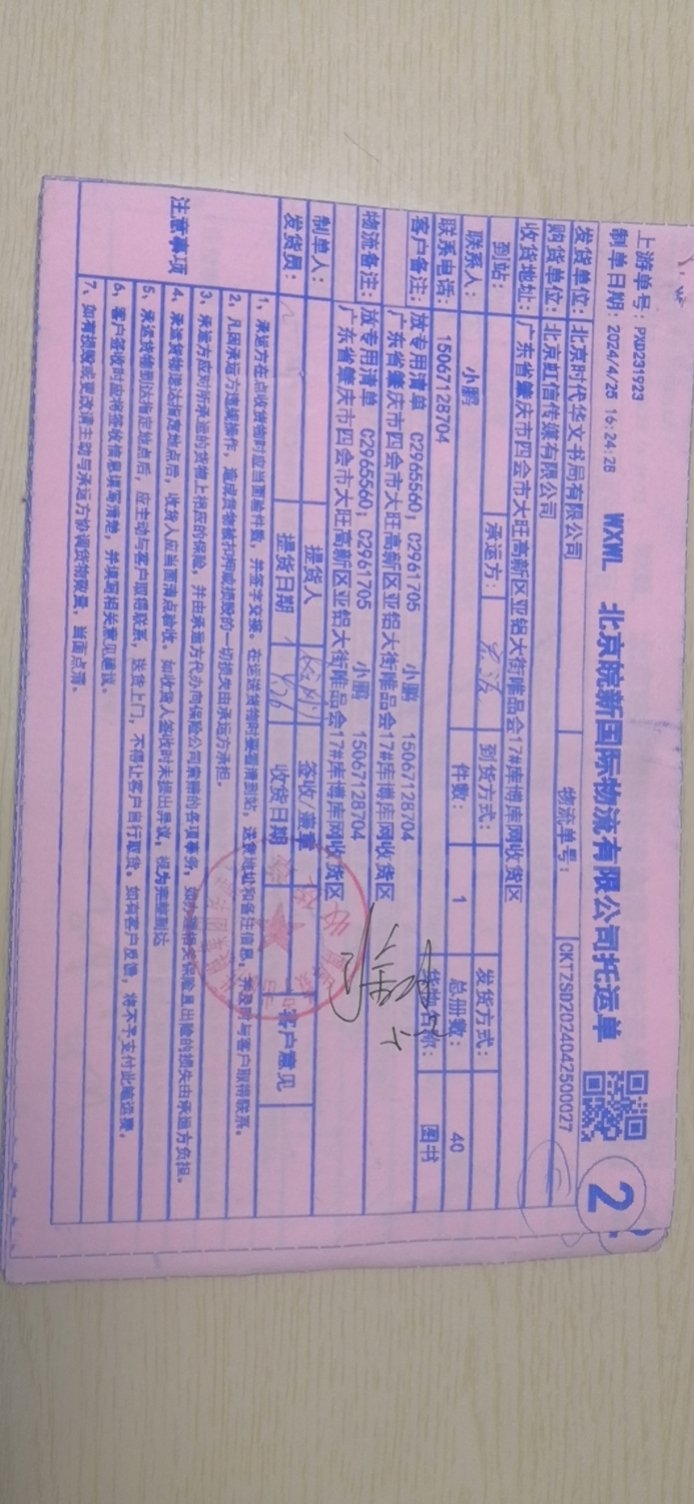 上游单号：PXD231923
制单日期：2024/4/25 16:24:28 WXWL 北京皖新国际物流有限公司托运单 2
发货单位：北京时代华文书局有限公司 物流单号： CKTZSD2024042500027
购货单位：北京虹信传媒有限公司
收货地址：广东省肇庆市四会市大旺高新区亚铝大街唯品会17#库博库网收货区
到站： 承运方： 到货方式： 发货方式：
联系人： 小鹏 件数： 1 总册数： 40
联系电话： 15067128704 货物名称： 图书
客户备注： 放专用清单 C2965560，C2961705 小鹏 15067128704
广东省肇庆市四会市大旺高新区亚铝大街唯品会17#库博库网收货区
物流备注： 放专用清单 C2965560，C2961705 小鹏 15067128704
广东省肇庆市四会市大旺高新区亚铝大街唯品会17#库博库网收货区
制单人： 提货人 签收/盖章
发货员： 提货日期 4/26 收货日期 客户意见
注意事项
1、承运方在点收货物时应当面验件数，并签字交接。在运送货物时要看清到站，送货地址和备注信息，并及时与客户取得联系。
2、凡因承运方违规操作，造成货物被扣押或损毁的一切损失由承运方承担。
3、承运方应对所承运的货物上相应的保险，并由承运方代办向保险公司索赔的各项事务，如办理相关保险且出险的损失由承运方负担。
4、承运货物送达指定地点后，收货人应当面清点验收。如收货人签收时未提出异议，视为完整到达
5、承运货物到达指定地点后，应主动与客户取得联系，送货上门，不得让客户自行取货。如有客户反馈，将不予支付此笔运费。
6、客户签收时应将签收信息填写清楚，并填写相关意见建议。
7、如有损毁或更改请主动与承运方协调货物数量，当面点清。